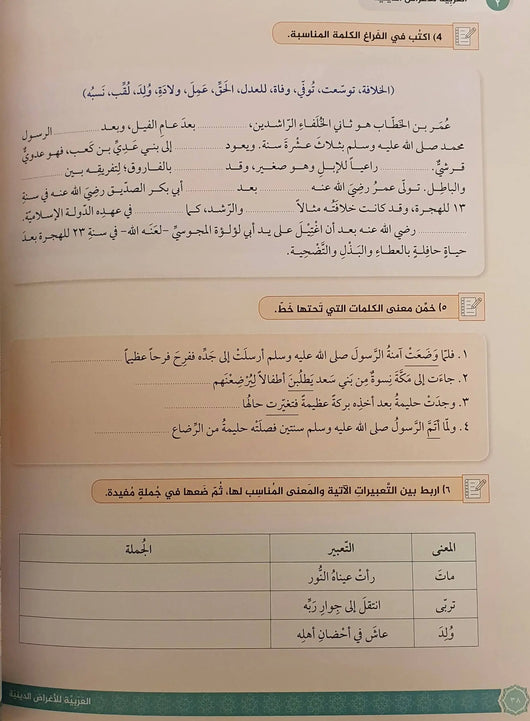 ٢
العربية للأغراض الدينية
٤) اكتُب في الفراغ الكلمة المناسبة.
(الخلافة، توسّعت، تُوفّي، وفاة، للعدل، الحَقّ، عَمِلَ، ولادَةِ، وُلِدَ، لُقّب، نَسبُه)
عُمَر بن الخَطّاب هو ثاني الخُلَفاءِ الرّاشدين، .......... بعدَ عامِ الفيل، وبعد .......... الرسول
محمد صلى الله عليه وسلم بثلاثَ عشْرةَ سنة. ويعود .......... إلى بني عَدِيِّ بن كَعب، فهو عدويٌّ
قرشيٌّ. .......... راعياً للإبلِ وهو صغير، وقد .......... بالفاروق؛ لِتفريقه بين ..........
والباطِل. تولّى عمرُ رضيَ الله عنه .......... بعد .......... أبي بكر الصدّيق رضيَ الله عنه في سنةِ
١٣ للهجرة، وقد كانت خلافَتُه مثالاً .......... والرشد، كما .......... في عهدِه الدّولة الإسلاميّة.
.......... رضي الله عنه بعد أن اغْتِيْلَ على يد أبي لؤلؤة المجوسيّ -لعَنَه الله- في سنةِ ٢٣ للهجرة بعدَ
حياةٍ حافِلةٍ بالعطاءِ والبَذْلِ والتَّضْحِية.
٥) خمّن معنى الكلمات التي تَحتها خَطّ.
١. فلمّا وَضَعَتْ آمنةُ الرَّسولَ صلى الله عليه وسلم أرسلَتْ إلى جَدِّه ففرِحَ فرحاً عظيماً ..........
٢. جاءَت إلى مَكّةَ نِسوةٌ مِن بَني سَعد يَطلُبنَ أطفالاً لِيُرْضِعْنَهم ..........
٣. وجدَتْ حليمةُ بعد أخذِه بركةً عظيمةً فتغيّرت حالُها ..........
٤. ولمّا أتَمَّ الرَّسولُ صلى الله عليه وسلم سنتين فصلَتْه حليمةُ من الرِّضاع ..........
٦) اربط بين التَّعبيراتِ الآتية والمَعنى المُناسِب لها، ثُمّ ضَعها في جُملةٍ مُفيدة.
المعنى التّعبير الجُملة
ماتَ رأتْ عيناهُ النُّور
تربّى انتقلَ إلى جِوارِ رَبِّه
وُلِدَ عاشَ في أحْضانِ أهلِه
٣٨
العَرَبيّة للأغراض الدينية